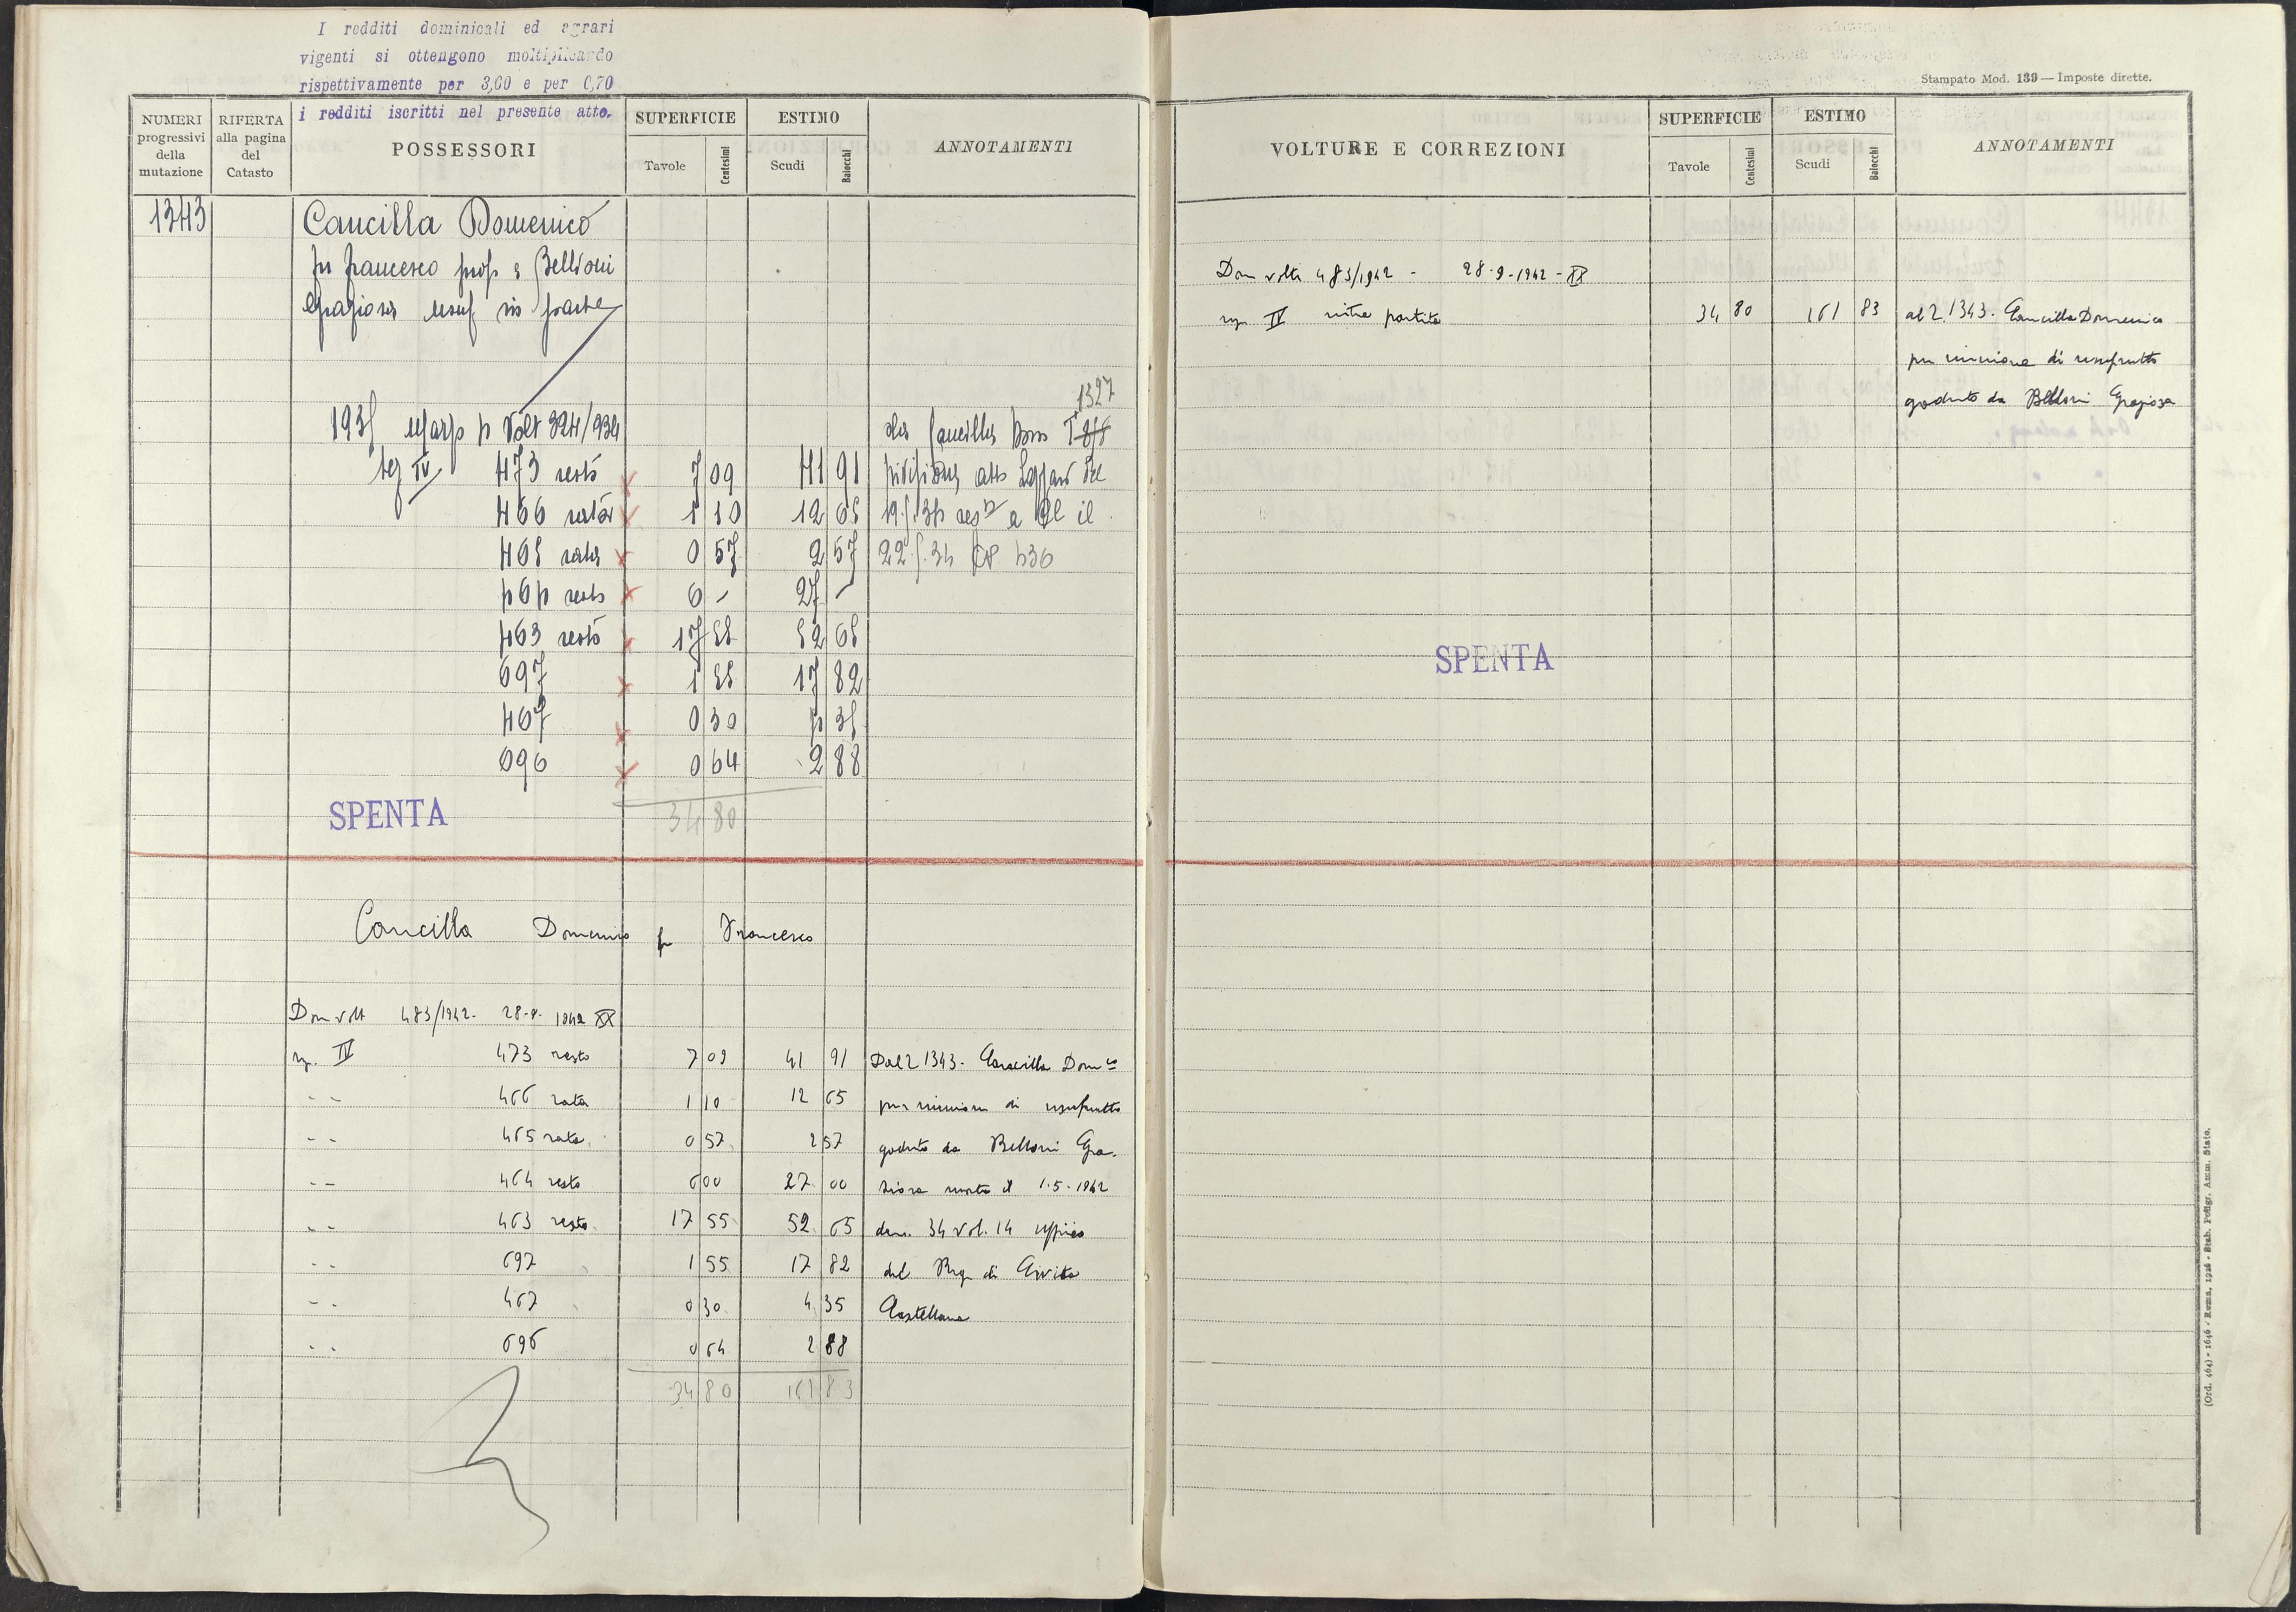 I redditi dominicali ed agrari
vigenti si ottengono moltiplicando
rispettivamente per 3,60 e per 0,70
i redditi iscritti nel presente atto.
NUMERI progressivi della mutazione
RIFERTA alla pagina del Catasto
POSSESSORI
SUPERFICIE
Tavole Centesimi
ESTIMO
Scudi Baiocchi
ANNOTAMENTI
1343 Cancilla Domenico
fu Francesco prop e Belloni
Graziosa usuf in parte
1327
1935 Marzo Volt 324/934 da Cancilla
sez IV 473 resto 7 09 41 91 divisione atto del
466 rata 1 10 12 65 e al il
465 rata 0 57 2 57 22.5.34
464 resto 6 - 27 -
463 resto 17 55 52 65
697 1 55 17 82
467 0 30 4 35
696 0 64 2 88
SPENTA 34 80
Cancilla Domenico fu Francesco
Dom volt 483/1942 - 28-9-1942 XX
sez. IV 473 resto 7 09 41 91 Dal 2 1343 - Cancilla Dom co
-- 466 rata 1 10 12 65 per riunione di usufrutto
-- 465 rata 0 57 2 57 goduto da Belloni Gra-
-- 464 resto 6 00 27 00 ziosa morta il 1-5-1942
-- 463 resto 17 55 52 65 den. 34 vol. 14 ufficio
-- 697 1 55 17 82 del Reg di Civita
-- 467 0 30 4 35 Castellana
-- 696 0 64 2 88
34 80 161 83
Stampato Mod. 139 — Imposte dirette.
VOLTURE E CORREZIONI
SUPERFICIE
Tavole Centesimi
ESTIMO
Scudi Baiocchi
ANNOTAMENTI
Dom volt 483/1942 - 28-9-1942 - XX
sez IV intera partita 34 80 161 83 al 2. 1343. Cancilla Domenico
per riunione di usufrutto
goduto da Belloni Graziosa
SPENTA
(Ord. 464) - 1646 - Roma, 1926 - Stab. Poligr. Amm. Stato.